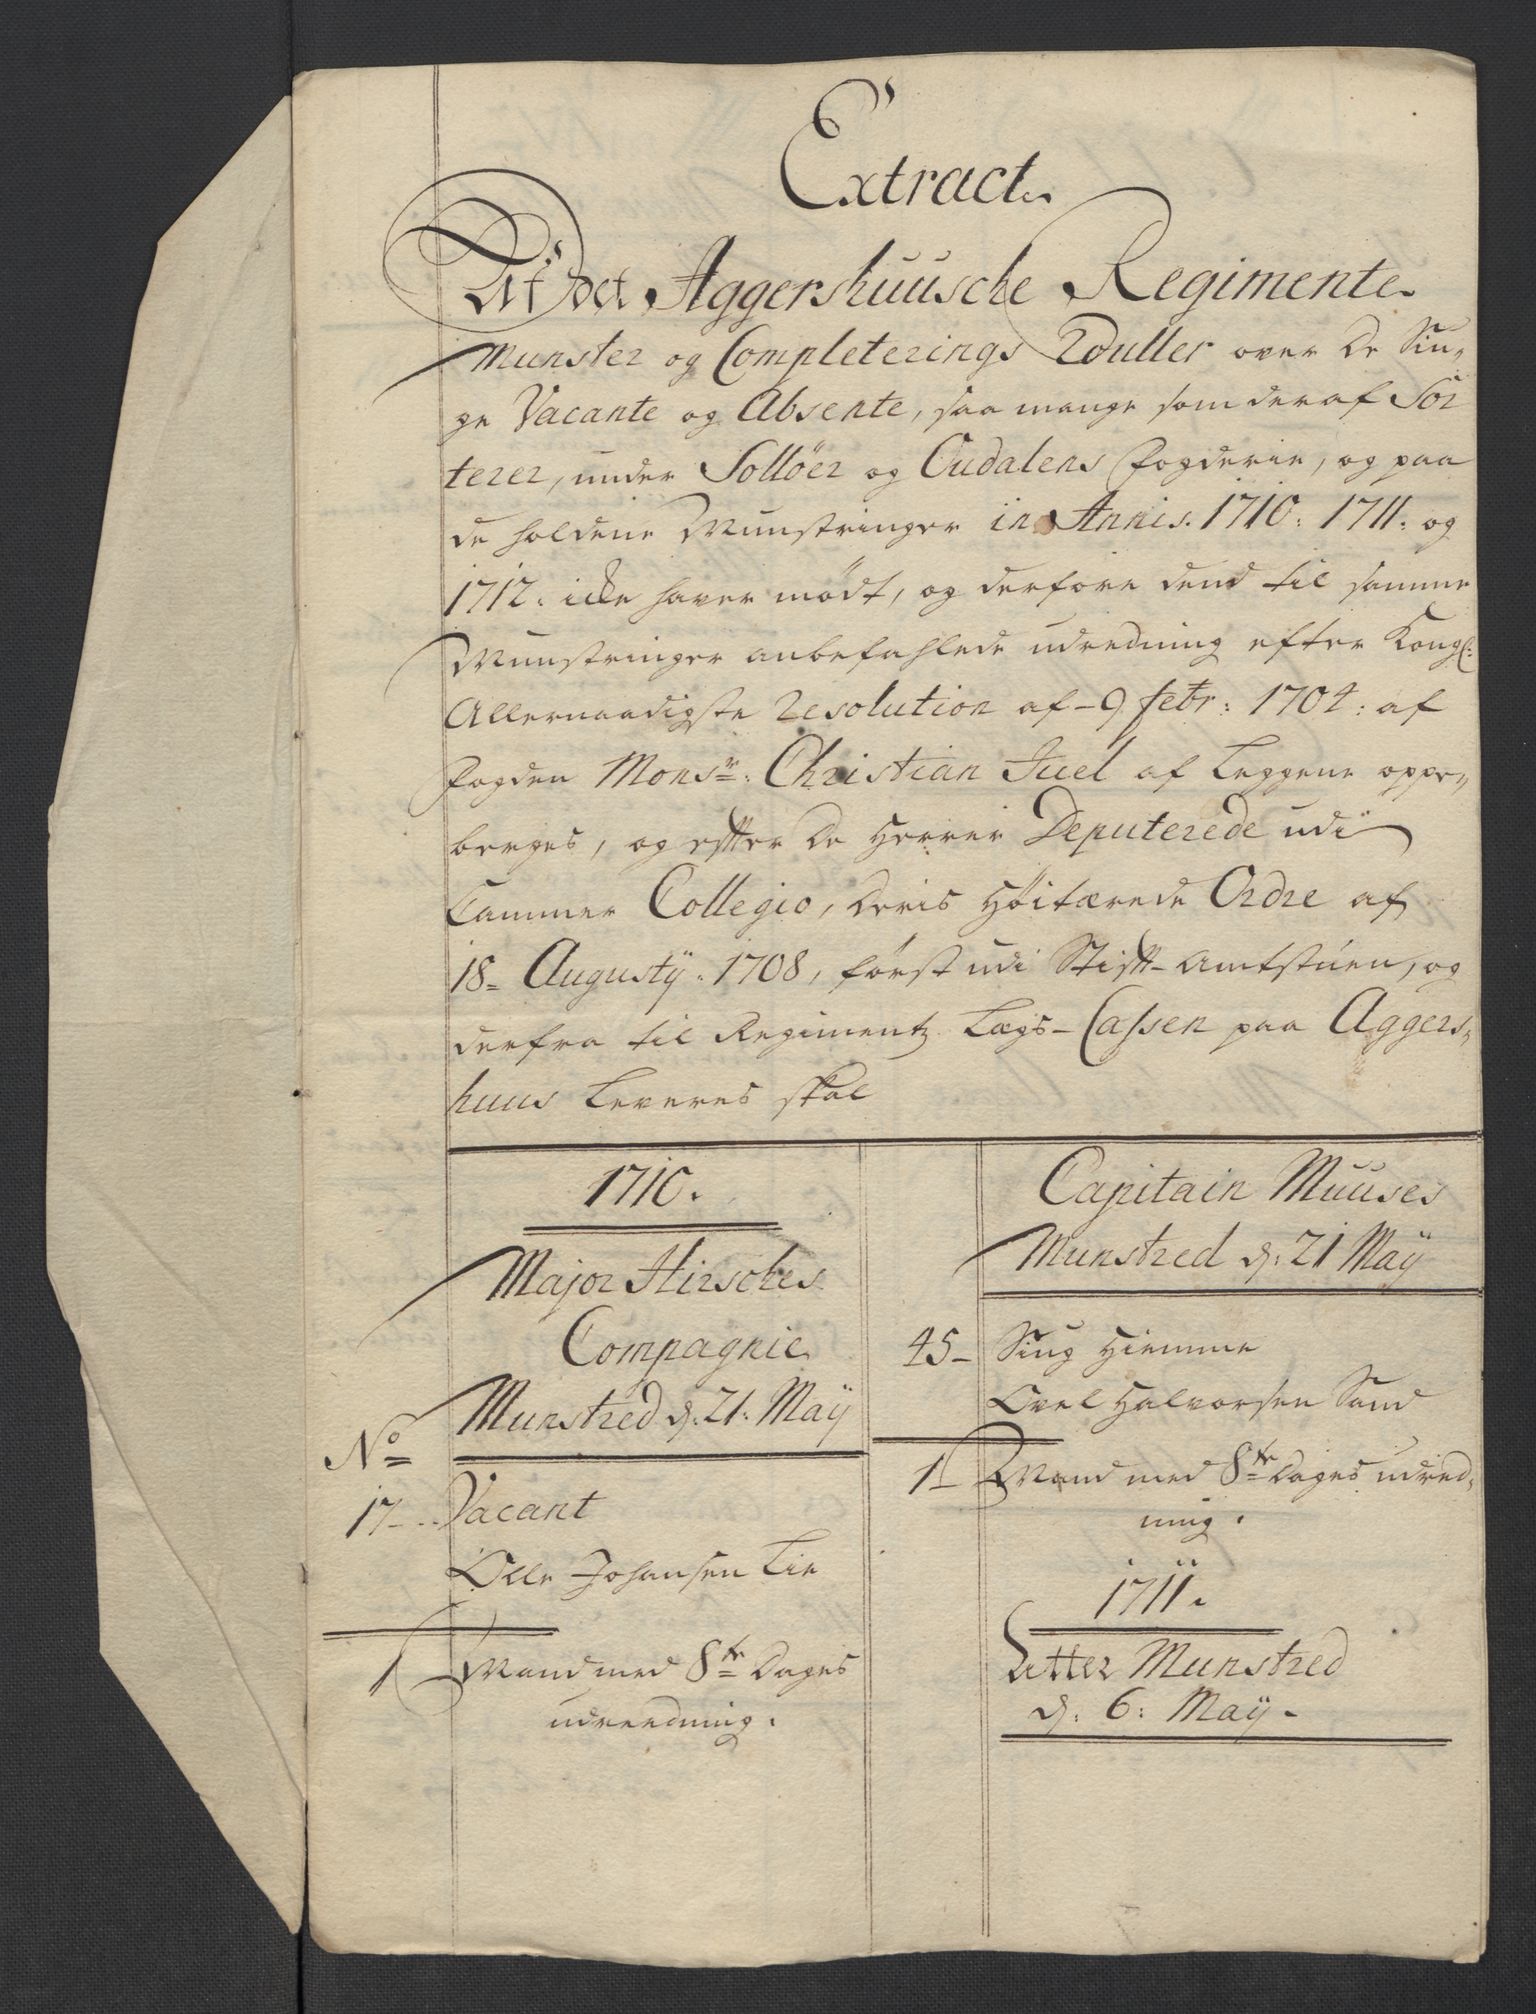 Extract
Af det Aggershuusche Regimente
Munster og Completerings Rouller over De Siu,,
ge Vacante og Absente, saa mange som deraf Sor
terer, under Solløer og Oudalens fogderie, og paa
de holdene Munstringer in Annis. 1710: 1711: og
1712: icke haver mødt, og derfore dend til samme
Munstringer anbefahlede udredning efter Kongl:
Allernaadigste Resolution af 9 febr: 1704: af
fogden Monsr: Christian Juel af Leggene oppe,,
berges, og efter De Herrer Deputerede udi
Cammer Collegio, Deris Høitærede Ordre af
18 Augusty 1708, først udi Stift-Amtstuen, og
derfra til Regimentz Lægs-Cassen paa Aggers,
huus Leveres skal
1710.
Major Hirsches
Compagnie
Munstred d: 21: Maÿ
No
17 Vacant
Olle Johansen Lie
1 Mand med 8te Dages
udreedning.
Capitain Muuses
Munstred d: 21 Maÿ
45 Siug Hiemme
Ovel Halvorsen Sand
1 Mand med 8te Dages udred,
ning.
1711.
Munstred
d: 6: Maÿ